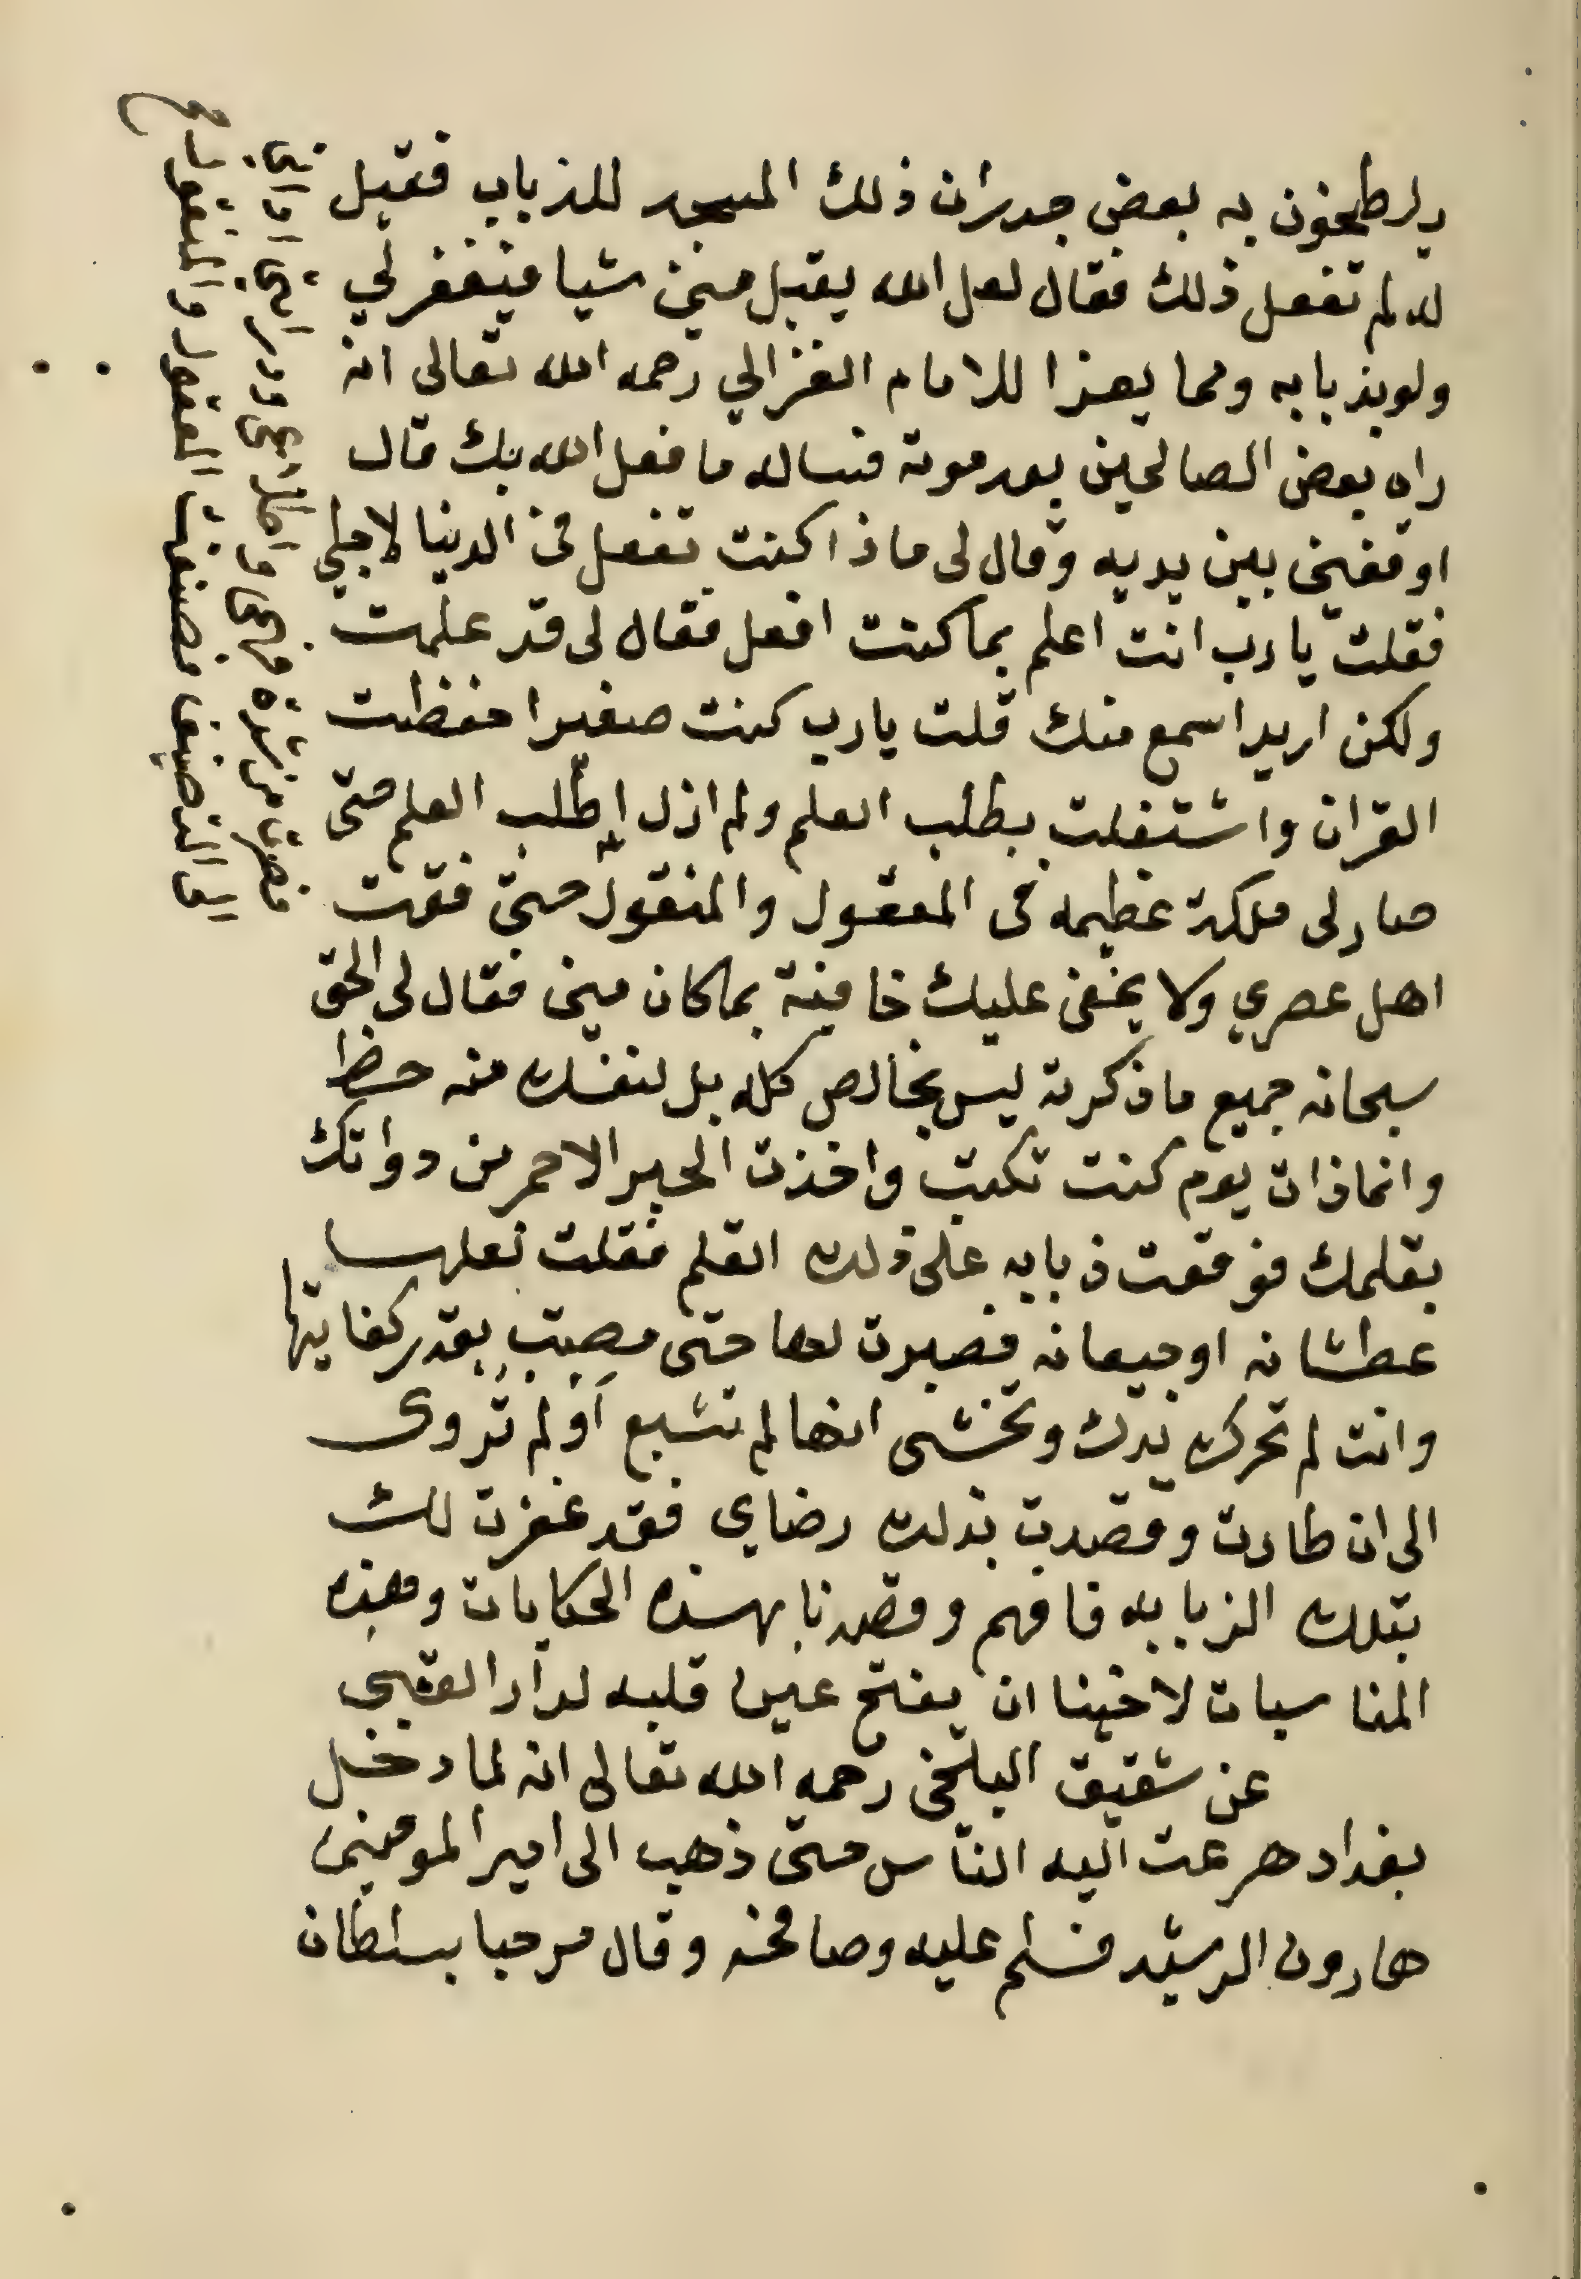 ويلطخون به بعض جدران ذلك المسجد للذباب فقيل
له لم تفعل ذلك فقال لعل الله يقبل مني شيا فيغفر لي
ولو بذبابه ومما يعزا للامام الغزالي رحمه الله تعالى انه
راه بعض الصالحين بعد موته فساله ما فعل الله بك قال
اوقفني بين يديه وقال لى ماذا كنت تفعل فى الدنيا لاجلي
فقلت يا رب انت اعلم بما كنت افعل فقال لى قد علمت
ولكن اريد اسمع منك قلت يا رب كنت صغيرا حفظت
القران واشتغلت بطلب العلم ولم ازل اطلب العلم حتى
صار لى ملكة عظيمه فى المعقول والمنقول حتى فقت
اهل عصري ولا يخفى عليك خافية بما كان مني فقال لى الحق
سبحانه جميع ما ذكرته ليس بخالص كله بل لنفسك منه حظ
وانما ذات يوم كنت تكتب واخذت الحبر الاحمر من دواتك
بقلمك فوقعت ذبابه على ذلك القلم فقلت لعلها
عطشانه او جيعانه فصبرت لها حتى مصت بقدر كفايتها
وانت لم تحرك يدك وتخشى انها لم تشبع او لم تروى
الى ان طارت وقصدت بذلك رضاي فقد غفرت لك
بتلك الذبابه فافهم وقصدنا بهذه الحكايات وهذه
المناسبات لاخينا ان يفتح عين قلبه لدار العقبى
عن شقيق البلخى رحمه الله تعالى انه لما دخل
بغداد هرعت اليه الناس حتى ذهب الى امير المومنين
هارون الرشيد فسلم عليه وصافحه وقال مرحبا بسلطان
فصرت من شدة واملاءى ودرايتى
الى التصنيف فصنفت المعقول والمنقول